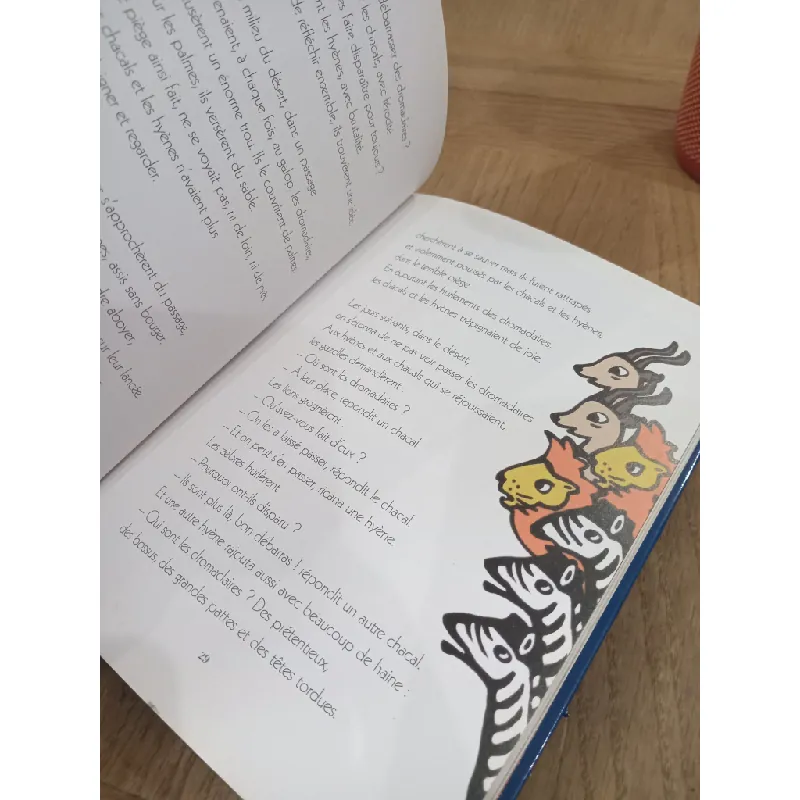 débarrasser des dromadaires ?
les chacals, avec férocité.
faire disparaître pour toujours ?
les hyènes, avec brutalité.
de réfléchir ensemble, ils trouvèrent une idée.
milieu du désert, dans un passage
à chaque fois, au galop, les dromadaires,
un énorme trou. Ils le couvrirent de palmes
sur les palmes, ils versèrent du sable.
piège ainsi fait, ne se voyait pas, ni de loin, ni de près.
chacals et les hyènes n'avaient plus
et regarder.
s'approchèrent du passage,
assis sans bouger.
aboyer,
leur lancée
cherchèrent à se sauver mais ils furent rattrapés
et violemment poussés par les chacals et les hyènes,
dans le terrible piège.
En écoutant les hurlements des dromadaires,
les chacals et les hyènes trépignaient de joie.
Les jours suivants, dans le désert,
on s'étonna de ne pas voir passer les dromadaires
Aux hyènes et aux chacals qui se réjouissaient,
les gazelles demandèrent
– Où sont les dromadaires ?
– À leur place, répondit un chacal.
Les lions grognèrent
– Qu'avez-vous fait d'eux ?
– On les a laissé passer, répondit le chacal.
– Et on peut s'en passer, ricana une hyène.
Les zèbres hurlèrent
– Pourquoi ont-ils disparu ?
– Ils sont plus là, bon débarras ! répondit un autre chacal.
Et une autre hyène rajouta aussi avec beaucoup de haine :
– Qui sont les dromadaires ? Des prétentieux,
de bossus, des grandes pattes et des têtes tordues.
29